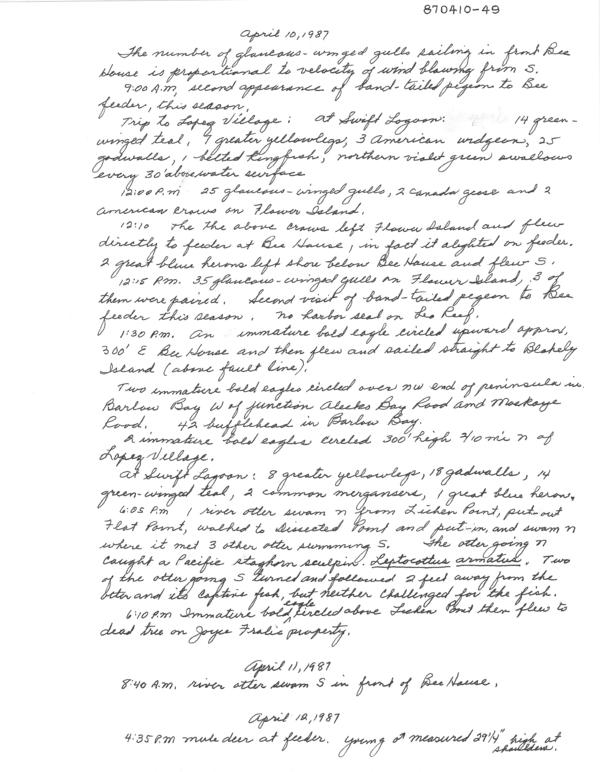 870410-49
April 10, 1987
The number of glaucous-winged gulls sailing in front Bee
House is proportional to velocity of wind blowing from S.
9:00 A.M. second appearance of band-tailed pigeon to Bee
feeder, this season.
Trip to Lopez Village: At Swift Lagoon: 14 green-
winged teal, 7 greater yellowlegs, 3 American widgeon, 25
gadwalls, 1 belted Kingfish, northern violet green swallows
every 30' above water surface
12:00 P.M 25 glaucous-winged gulls, 2 Canada geese and 2
American crows on Flower Island.
12:10 The the above crows left Flower Island and flew
directly to feeder at Bee House, in fact it alighted on feeder.
2 great blue herons left shore below Bee House and flew S.
12:15 P.M. 35 glaucous-winged gulls on Flower Island, 3 of
them were paired. Second visit of band-tailed pegeon to Bee
feeder this season. No harbor seal on Leo Reef.
1:30 P.M. An immature bald eagle circled upward approx,
300' E Bee House and then flew and sailed straight to Blakely
Island (above fault line).
Two immature bald eagles circled over NW end of peninsula in
Barlow Bay W of junction Alecks Bay Road and Mackaye
Road. 42 bufflehead in Barlow Bay.
2 immature bald eagles circled 300' high 3/10 mi N of
Lopez Village.
At Swift Lagoon: 8 greater yellowlegs, 18 gadwalls, 14
green-winged teal, 2 common mergansers, 1 great blue heron.
6:05 P.M 1 river otter swam N from Lichen Point, put-out
Flat Point, walked to Dissected Point and put-in, and swam N
where it met 3 other otter swimming S. The otter going N
caught a Pacific staghorn sculpin. Leptocottus armatus. Two
of the otter going S turned and followed 2 feet away from the
otter and its captive fish, but neither challenged for the fish.
6:10 P.M Immature bald eagle circled above Lichen Point then flew to
dead tree on Joyce Fralis property.
April 11, 1987
8:40 A.M. river otter swam S in front of Bee House.
April 12, 1987
4:35 P.M mule deer at feeder. young ♂ measured 29 1/4" high at
shoulders.